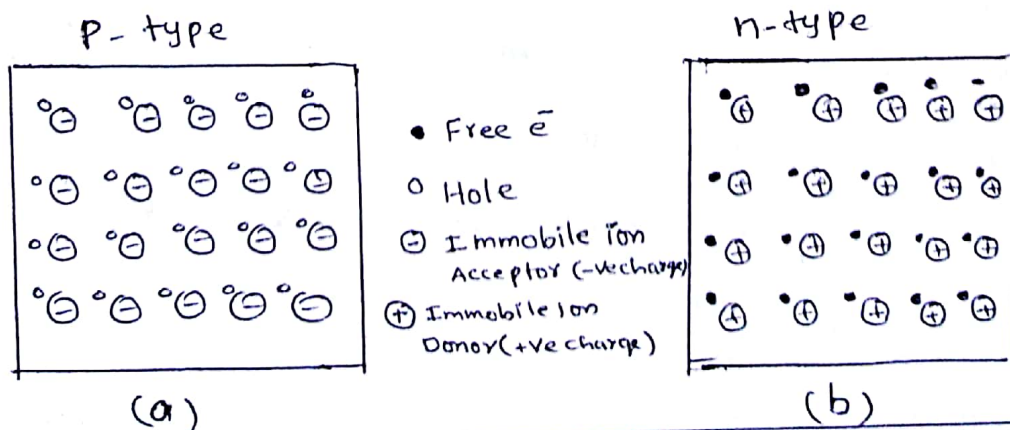 P-type
n-type
• Free e̅
○ Hole
⊖ Immobile ion
Acceptor (-ve charge)
⊕ Immobile ion
Donor (+ve charge)
(a)
(b)